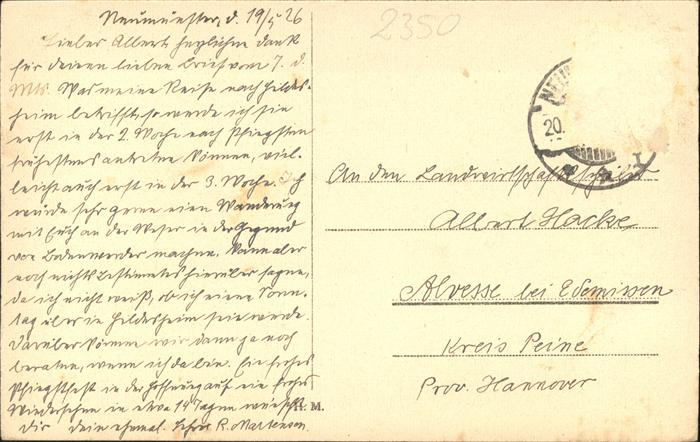 2350
Neumünster, d. 19/5 26
Lieber Albert, herzlichen Dank
für deinen lieben Brief vom 7. d.
Mts. Was meine Reise nach Hildes-
heim betrifft, so werde ich sie
erst in der 2. Woche nach Pfingsten
frühestens antreten können, viel-
leicht auch erst in der 3. Woche. Ich
würde sehr gerne eine Wanderung
mit Euch an der Weser in der Gegend
von Bodenwerder machen. Kann aber
noch nichts bestimmtes hierüber sagen,
da ich nicht weiß, ob ich einen Sonn-
tag über in Hildesheim sein werde.
Darüber können wir dann ja noch
beraten, wenn ich da bin. Ein frohes
Pfingstfest in der Hoffnung auf ein frohes
Wiedersehen in etwa 14 Tagen wünscht
Dir dein ehemal. Lehrer R. Martensen.
H. M.
20.
An den Landwirtschaftsschüler
Albert Hacke
Alvesse bei Edemissen
Kreis Peine
Prov. Hannover